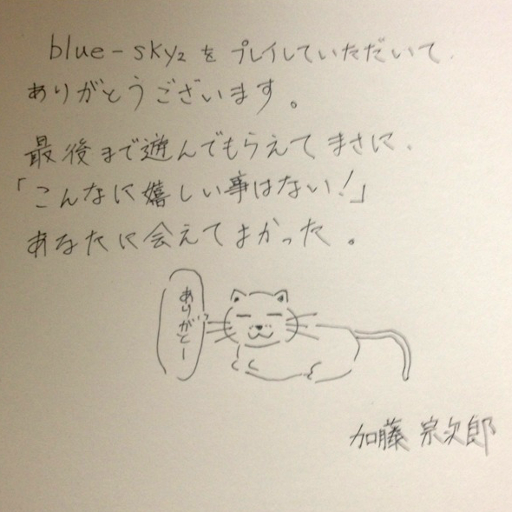 blue-sky2をプレイしていただいて
ありがとうございます。
最後まで遊んでもらえてまさに、
「こんなに嬉しい事はない!」
あなたに会えてよかった。
ありがとー
加藤宗次郎